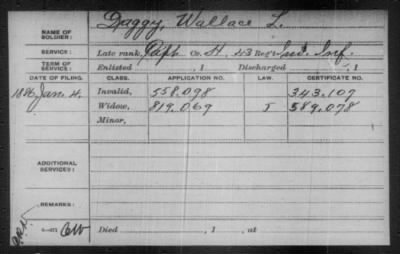 NAME OF SOLDIER: Daggy, Wallace L.
SERVICE: Late rank, Capt. Co. H, 43 Reg't Ind. Inf.
TERM OF SERVICE: Enlisted , 1 Discharged , 1
DATE OF FILING. CLASS. APPLICATION NO. LAW. CERTIFICATE NO.
1886 Jan. 4. Invalid, 558.098 343.107
Widow, 819.069 I 589.078
Minor,
ADDITIONAL SERVICES:
REMARKS:
Died , 1 , at